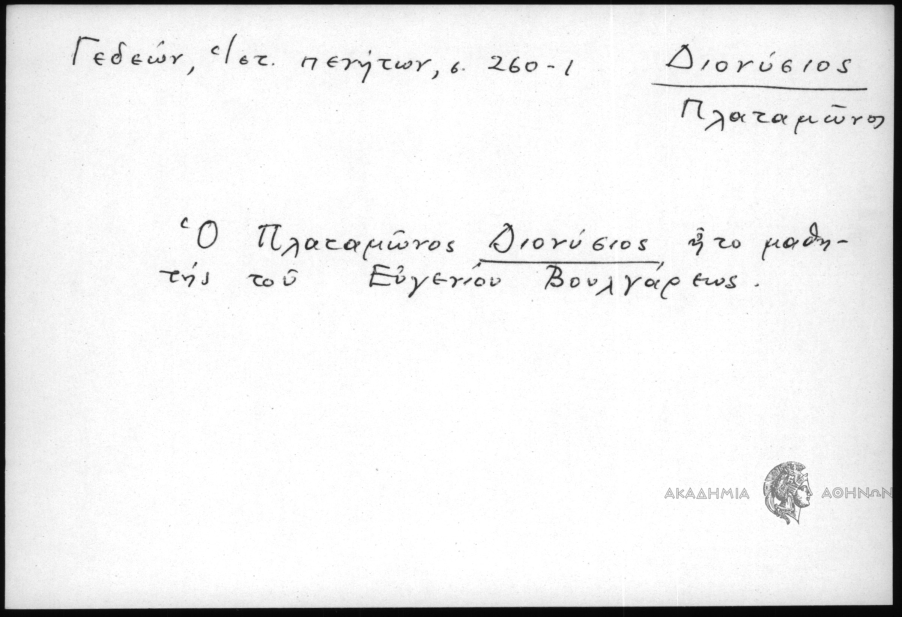 Γεδεών, Ἱστ. πενήτων, σ. 260-1
Διονύσιος
Πλαταμῶνος
Ὁ Πλαταμῶνος Διονύσιος ἦτο μαθη-
τής τοῦ Εὐγενίου Βουλγάρεως.
ΑΚΑΔΗΜΙΑ ΑΘΗΝΩΝ